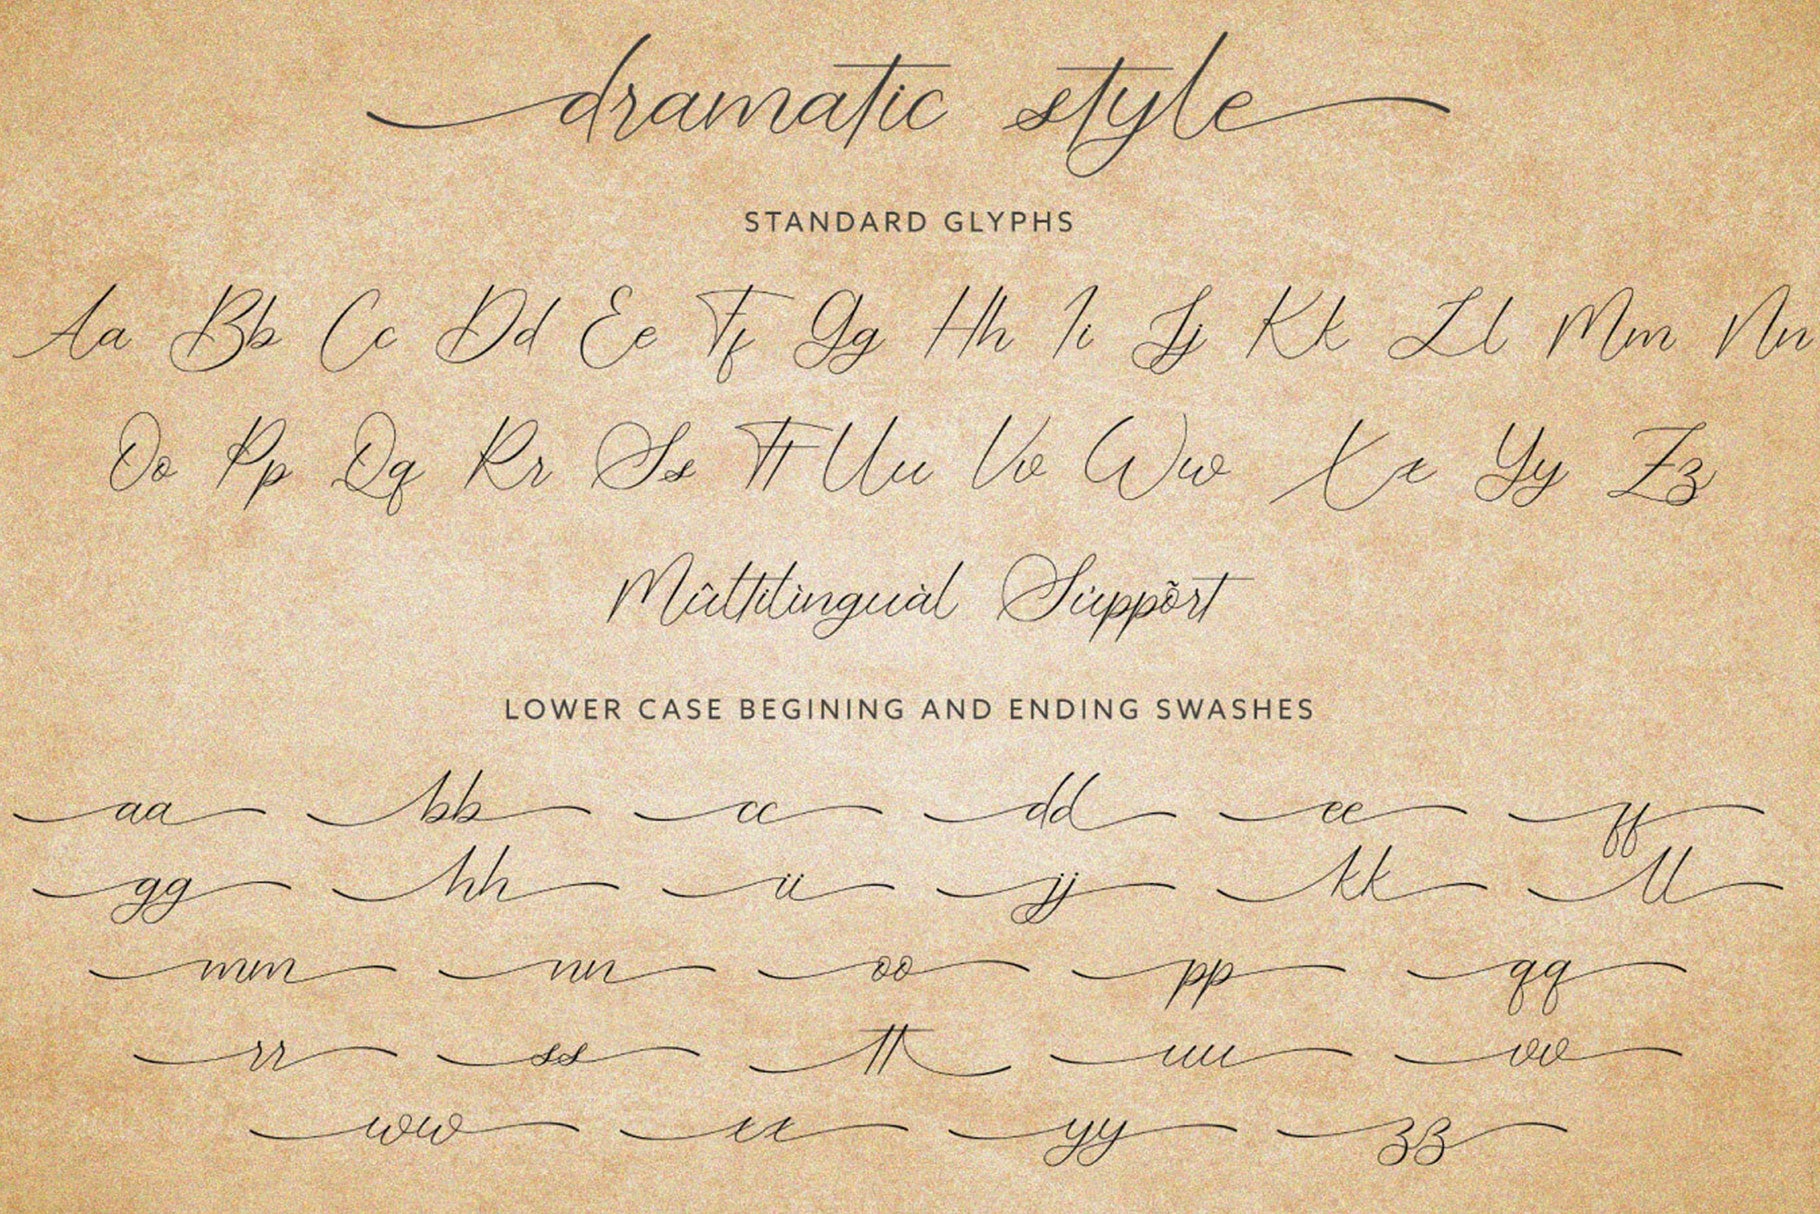 dramatic style
STANDARD GLYPHS
Aa Bb Cc Dd Ee Ff Gg Hh Ii Jj Kk Ll Mm Nn
Oo Pp Qq Rr Ss Tt Uu Vv Ww Xx Yy Zz
Mûltilìnguàl Sùppõrt
LOWER CASE BEGINING AND ENDING SWASHES
aa bb cc dd ee ff
gg hh ii jj kk ll
mm nn oo pp qq
rr ss tt uu vv
ww xx yy zz